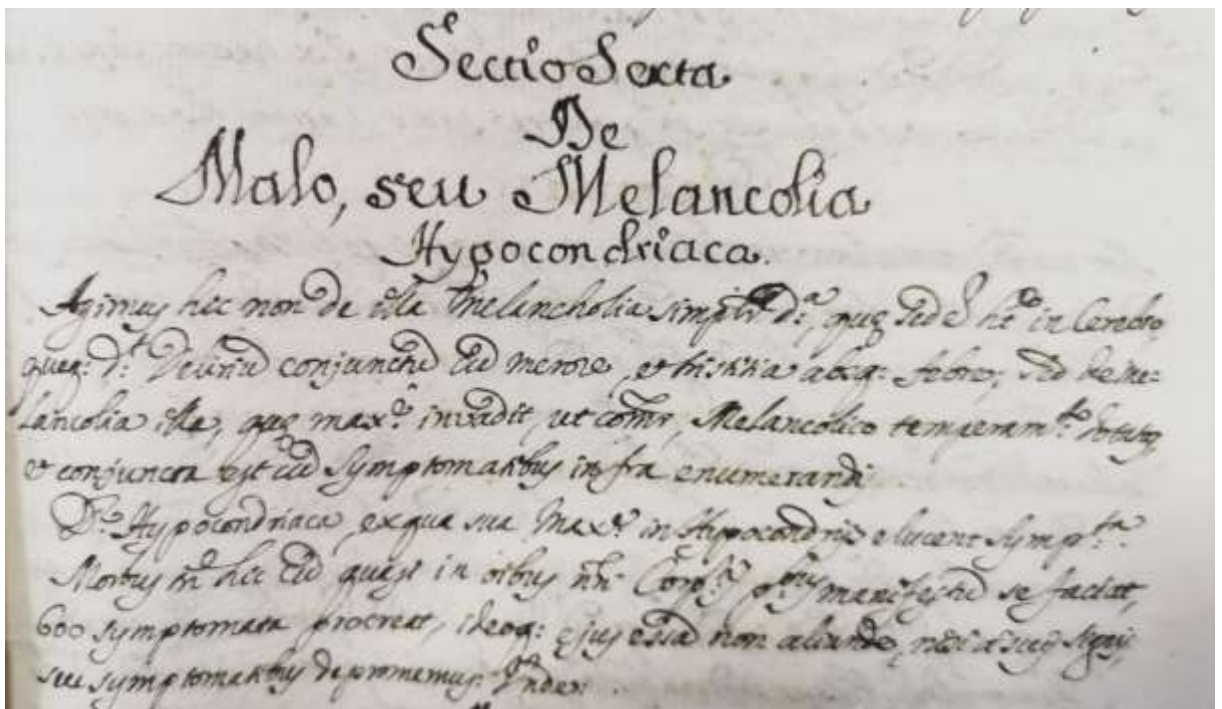 Sectio Sexta
De
Malo, seu Melancolia
Hypocondriaca.
Agimus hic non de illa Melancholia simplr da, quę sedē hēt in Cerebro,
quęq: dr Deliriū conjunctū cū merore, et tristitia absq: febre; sed de Me=
lancolia illa, quę maxe invadit, ut comr, Melancolico temperamto
et conjuncta est cū symptomatibus infra enumerandis
Dr Hypocondriaca, ex qua sua maxe in Hypocondrijs elucent sympta.
Morbus hic cū quasi in oibus Corpis manifestū se faciat,
600 symptomata procreat, ideoq: ejus non aliunde, nisi a suis signis,
seu symptomatibus depromemus. Unde: